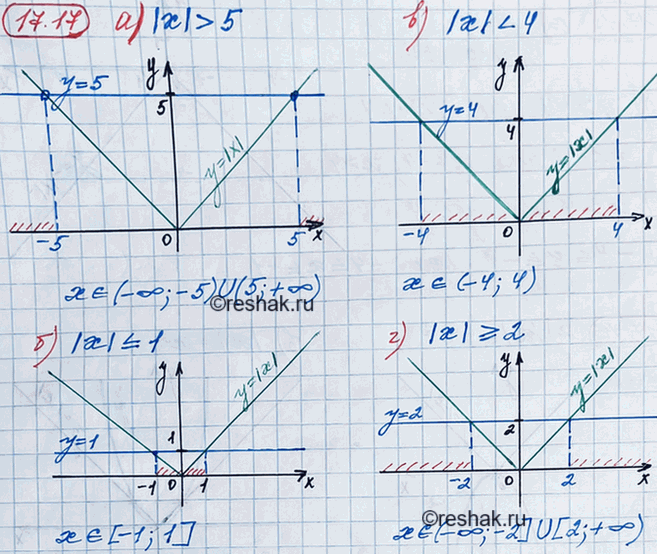 17.17 а) |x| > 5
y
y=5
5
y=|x|
-5 0 5 x
x ∈ (-∞; -5) ∪ (5; +∞)
в) |x| < 4
y
y=4
4
y=|x|
-4 0 4 x
x ∈ (-4; 4)
©reshak.ru
б) |x| ≤ 1
y
y=|x|
y=1
1
-1 0 1 x
x ∈ [-1; 1]
г) |x| ≥ 2
y
y=|x|
y=2
2
-2 0 2 x
©reshak.ru
x ∈ (-∞; -2] ∪ [2; +∞)